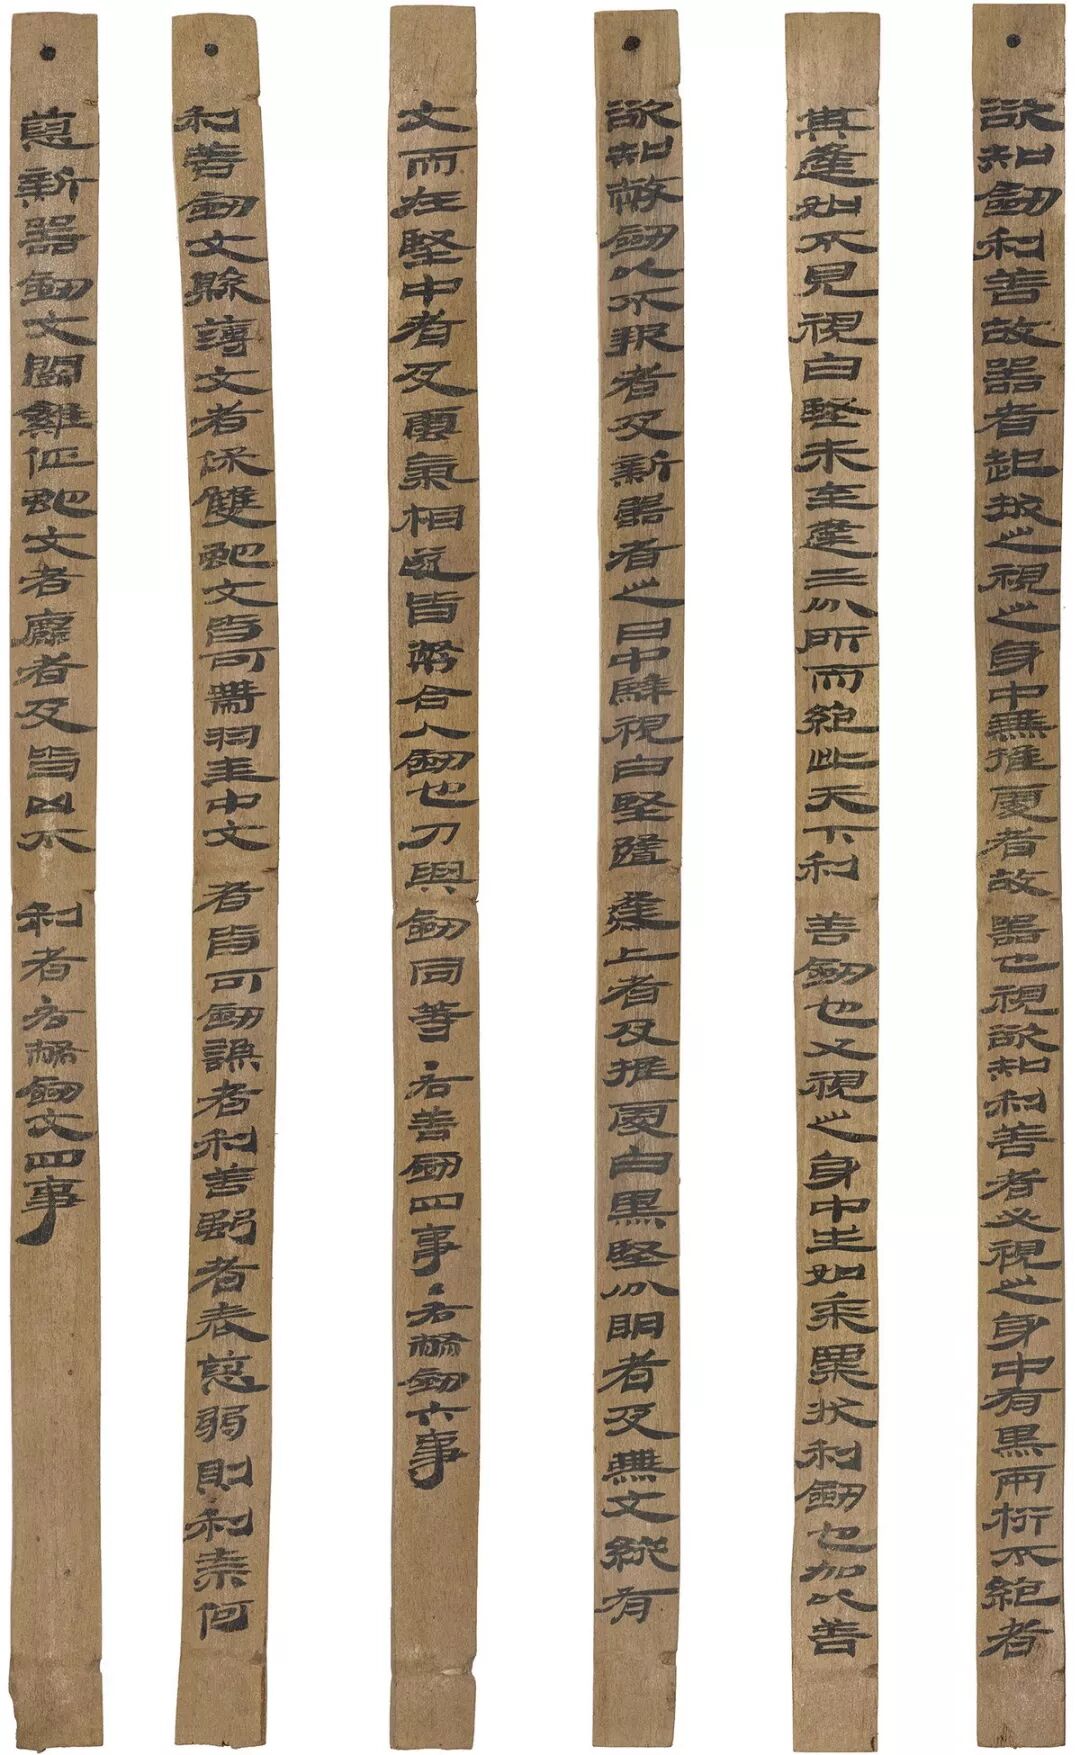 ●欲知劍利善故器者起拔之視之身中無推處者故器也視欲知利善者必視之身中有黑兩桁不絕者
其逢如不見視白堅未至逢三分所而絕此天下利善劍也又視之身中生如黍粟狀利劍也加以善
●欲知幣劍以不報者及新器者之日中騂視白堅隨逢上者及推處白黑堅分明者及無文縱有
文而在堅中者及雲氣相遂皆幣合人劍也刀與劍同等●右善劍四事●右幣劍六事
●利善劍文縣薄文者保雙蛇文皆可帶羽圭中文者皆可劍謙者利善強者表恿弱則利奈何
●恿新器劍文鬭雞佂蛇文者麤者及皆凶不利者●右幣劍文四事